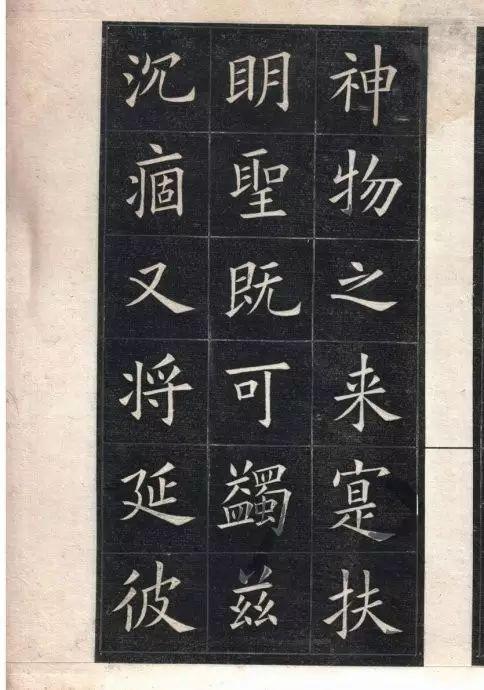 神物之来寔扶
明聖既可蠲兹
沉痼又将延彼